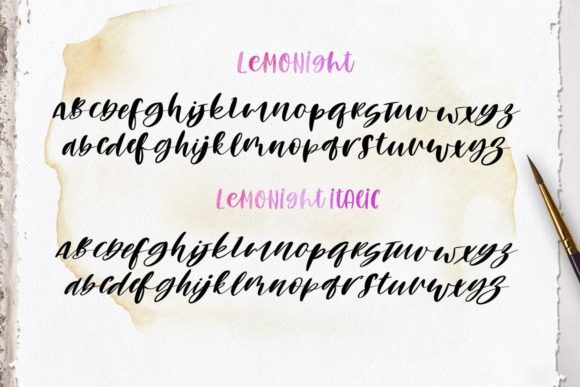 LEMONight
ABCDefghijklmnopqRSTuvwxyz
abcdefghijklmnopqrstuvwxyz
LEMONight iTALiC
ABCDefghijklmnopqRSTuvwxyz
abcdefghijklmnopqrstuvwxyz